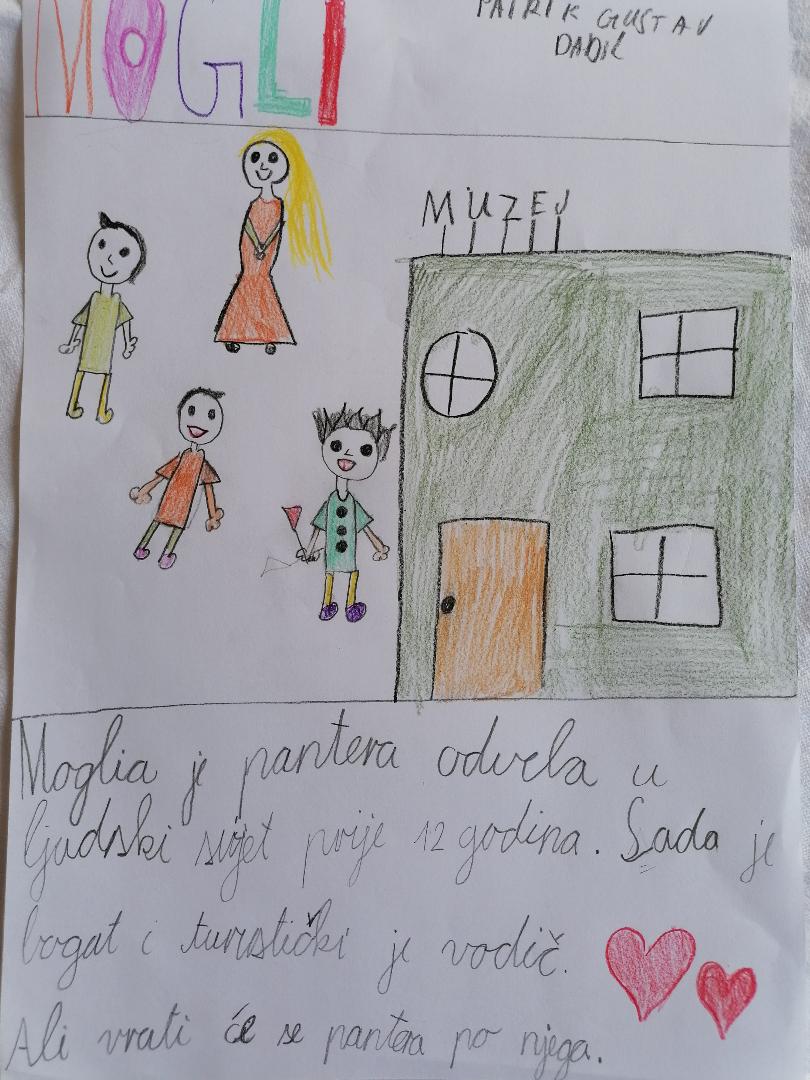 MOGLI
PATRIK GUSTAV
DADIĆ
MUZEJ
Moglia je pantera odvela u
ljudski svijet prije 12 godina. Sada je
bogat i turistički je vodič.
Ali vrati će se pantera po njega.